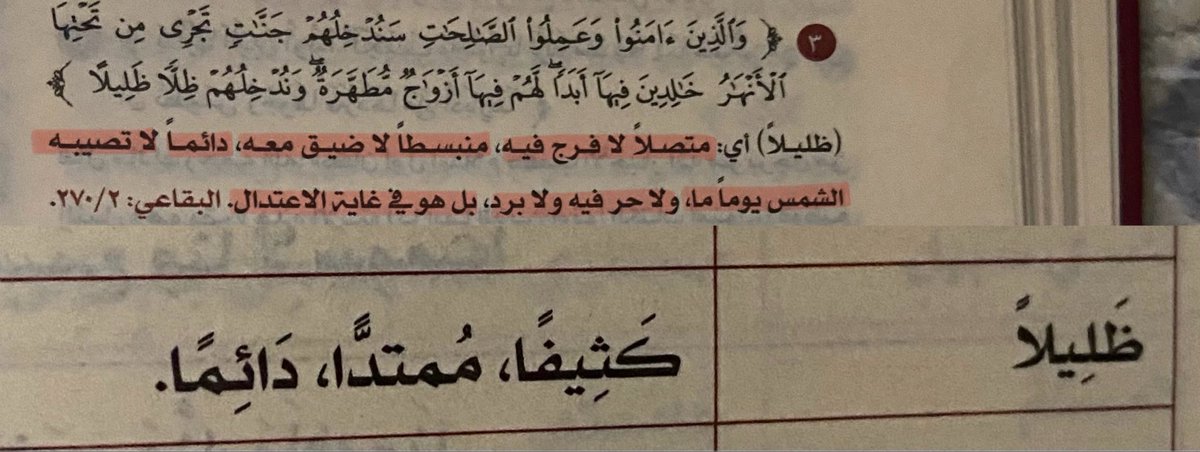 ٣ ﴿ وَٱلَّذِينَ ءَامَنُوا۟ وَعَمِلُوا۟ ٱلصَّـٰلِحَـٰتِ سَنُدْخِلُهُمْ جَنَّـٰتٍ تَجْرِى مِن تَحْتِهَا
ٱلْأَنْهَـٰرُ خَـٰلِدِينَ فِيهَآ أَبَدًا ۖ لَّهُمْ فِيهَآ أَزْوَٰجٌ مُّطَهَّرَةٌ ۖ وَنُدْخِلُهُمْ ظِلًّا ظَلِيلًا ﴾
(ظليلاً) أي: متصلاً لا فرج فيه، منبسطاً لا ضيق معه، دائماً لا تصيبه
الشمس يوماً ما، ولا حر فيه ولا برد، بل هو في غاية الاعتدال. البقاعي: ٢/ ٢٧٠.
ظَلِيلاً كَثِيفًا، مُمتدًّا، دَائِمًا.